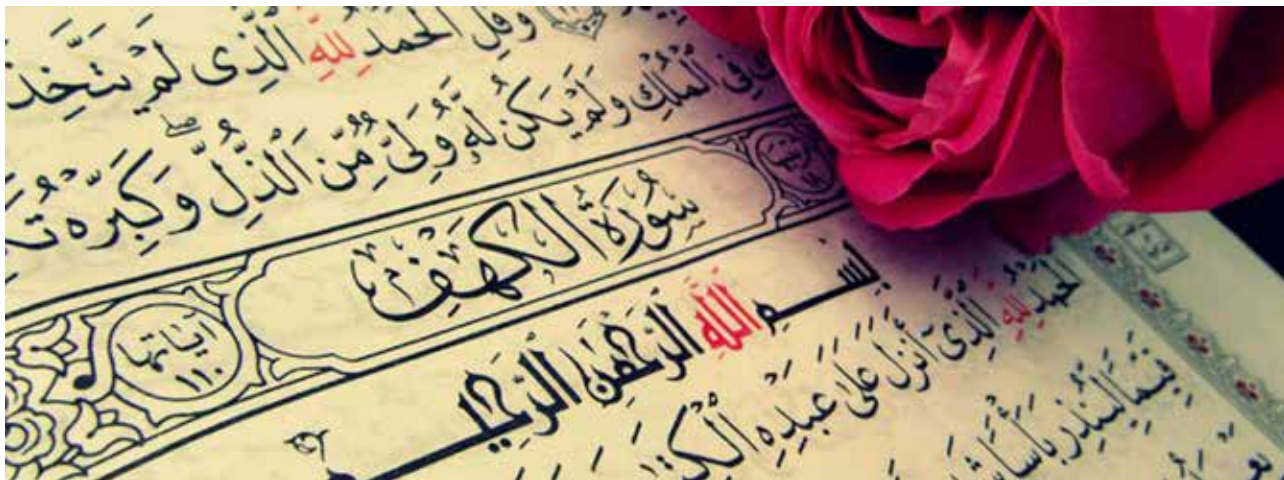 وَقُلِ الْحَمْدُ لِلَّهِ الَّذِى لَمْ يَتَّخِذْ
فِى الْمُلْكِ وَلَمْ يَكُن لَّهُ وَلِىٌّ مِّنَ الذُّلِّ وَكَبِّرْهُ
سُورَةُ الْكَهْفِ
آيَاتُهَا
١١٠
بِسْمِ اللَّهِ الرَّحْمَٰنِ الرَّحِيمِ
الْحَمْدُ لِلَّهِ الَّذِى أَنزَلَ عَلَىٰ عَبْدِهِ
لِّيُنذِرَ بَأْسًا